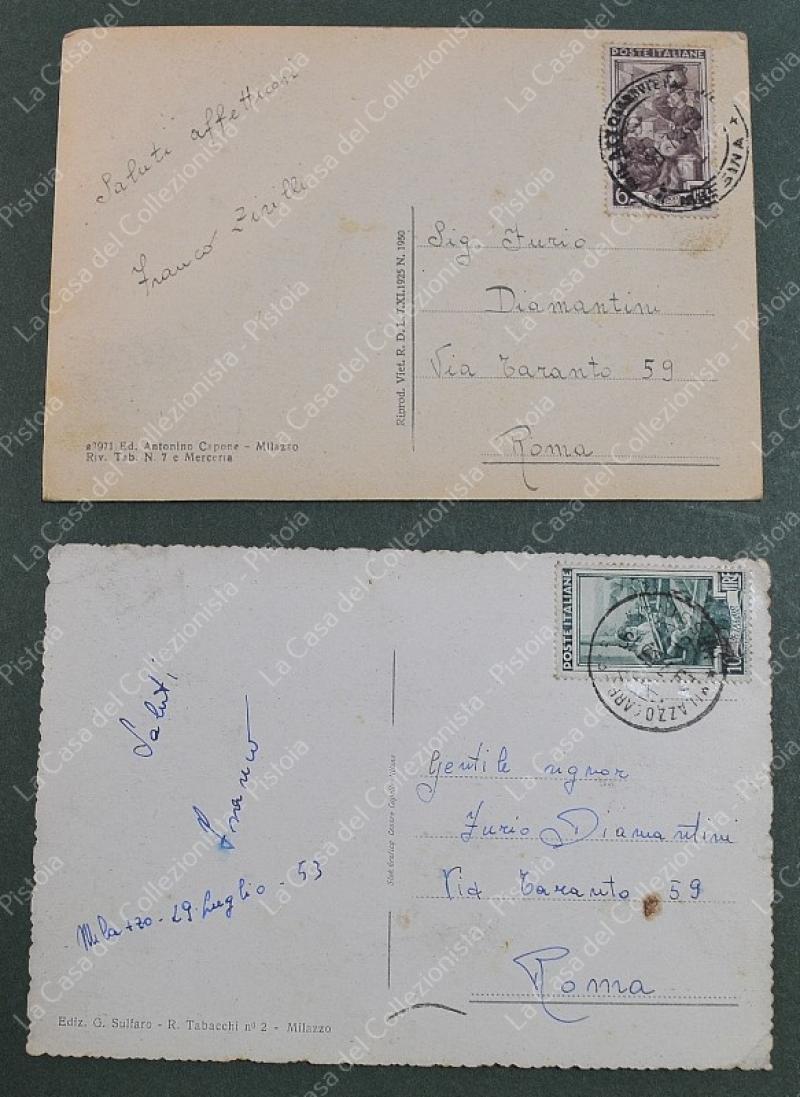 POSTE ITALIANE
Saluti affettuosi
Franco Zirilli
Sig. Furio
Diamantini
Via Taranto 59
Roma
Riprod. Viet. R. D. L. 7.XI.1925 N. 1950
Ed. Antonino Capone - Milazzo
Riv. Tab. N. 7 e Merceria
POSTE ITALIANE
LIRE
Saluti
Franco
Milazzo - 29 Luglio - 53
Gentile signor
Furio Diamantini
Via Taranto 59
Roma
Ediz. G. Sulfaro - R. Tabacchi nº 2 - Milazzo
La Casa del Collezionista - Pistoia